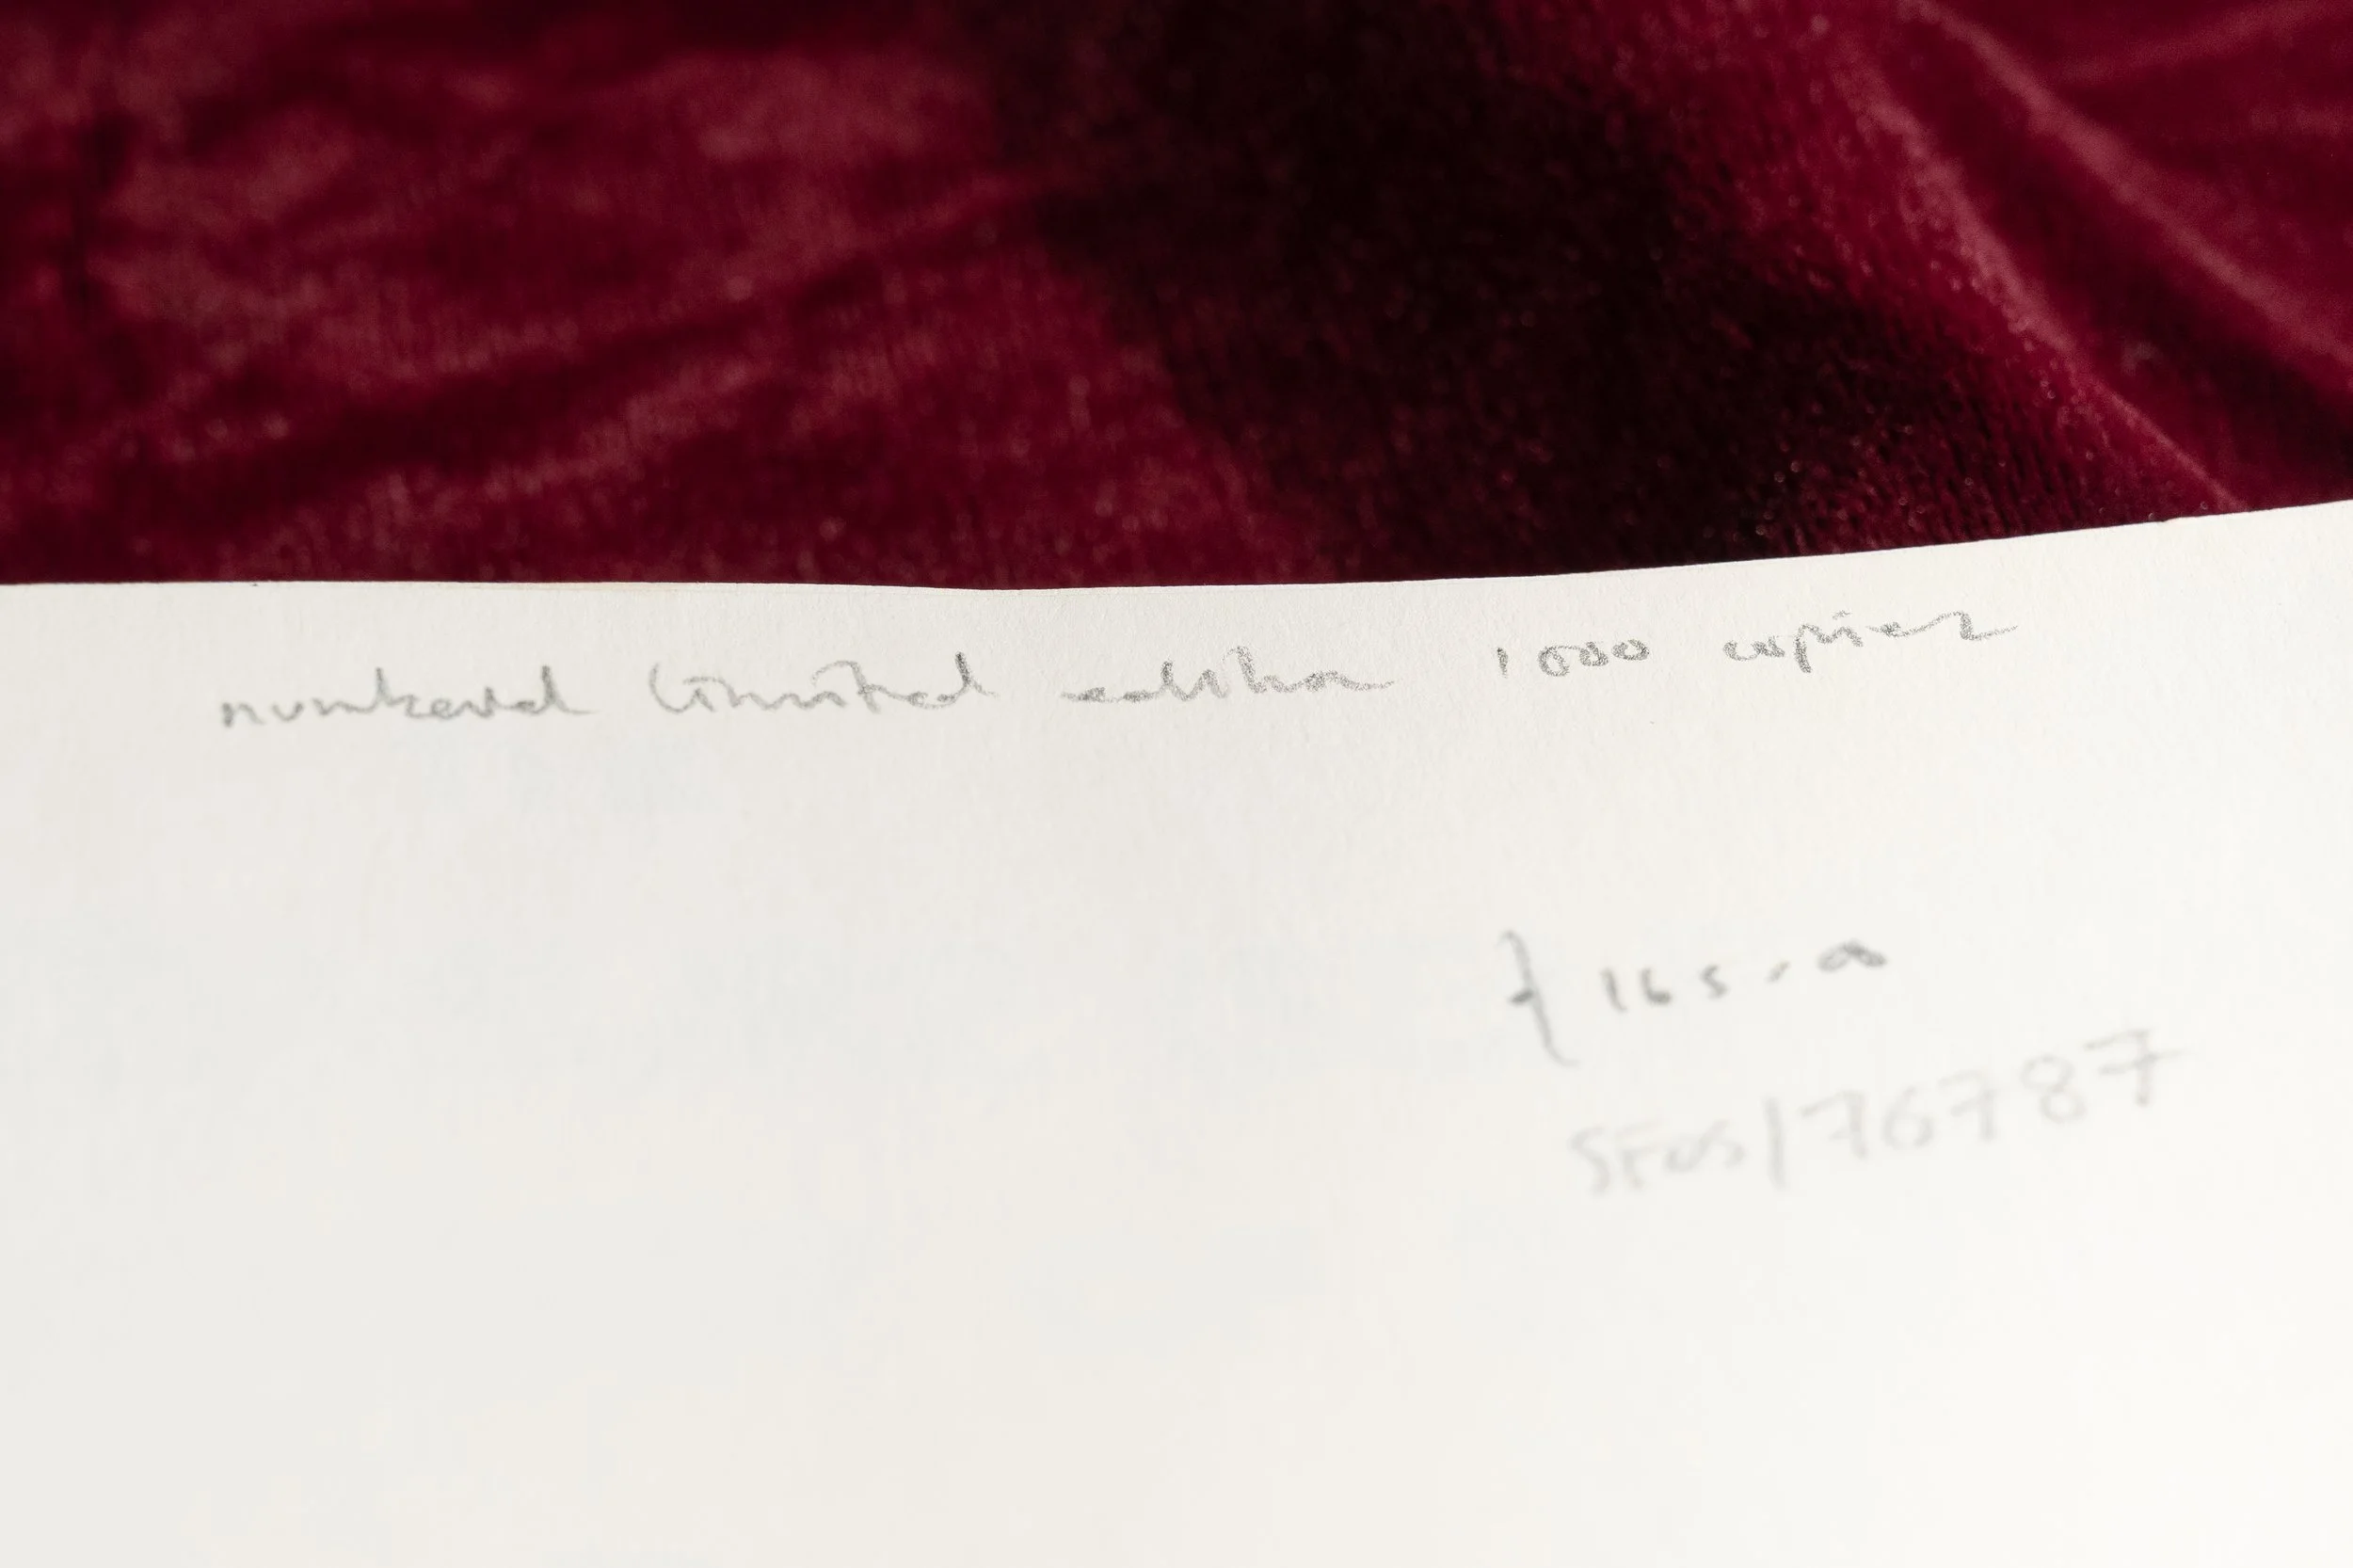 numbered limited edition 1000 copies
£165.00
SF05/76787